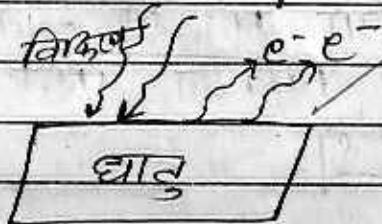 विकिरण e⁻ e⁻
धातु